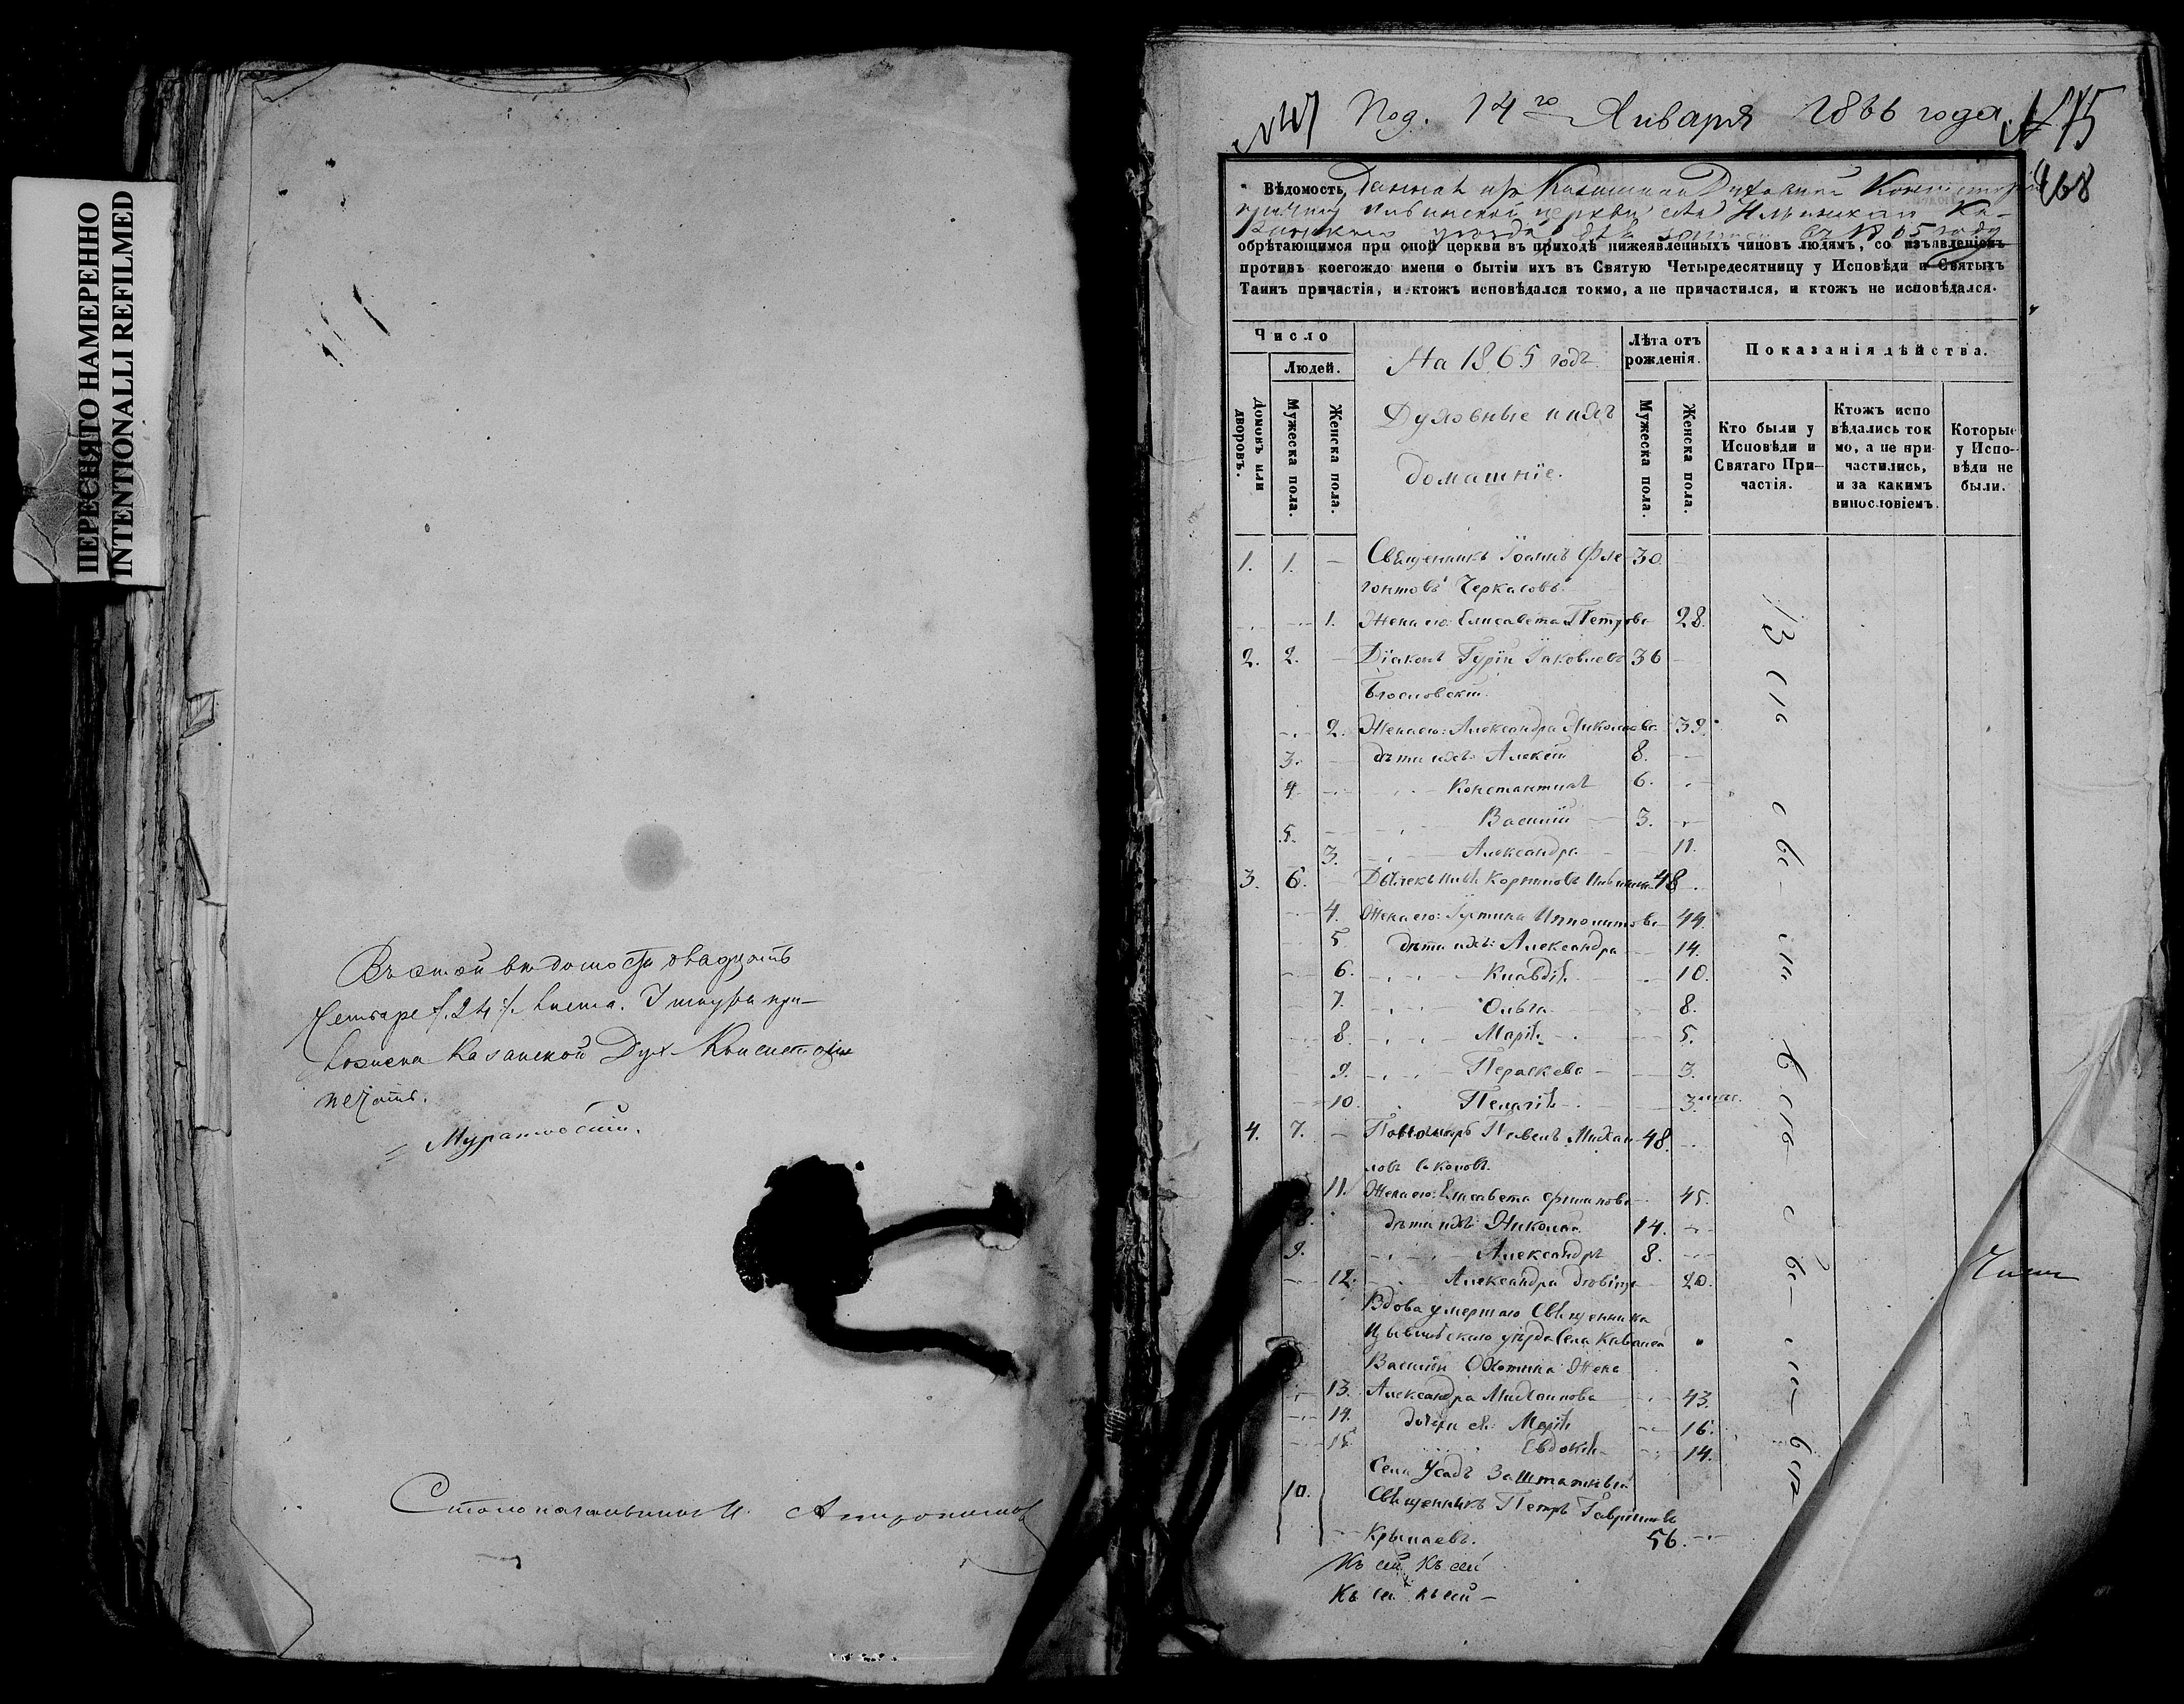 ПЕРЕСНЯТО НАМЕРЕННО
INTENTIONALLI REFILMED
Въ этой вѣдомости двадцать
четыре /.24/. листа. У шнура при-
ложена Казанской Дух. Консисторіи
печать.
Столоначальникъ
Под. 14го Января 1866 года.
468
Вѣдомость, данная изъ Казанской Духовной Консисторіи
причту Ильинской церкви села Ильинскаго Ка-
занскаго уѣзда, для записи въ 1865 году
обрѣтающимся при оной церкви въ приходѣ нижеявленныхъ чиновъ людямъ, со изъявленіемъ
противъ коегождо имени о бытіи ихъ въ Святую Четыредесятницу у Исповѣди и Святыхъ
Таинъ причастія, и ктожъ исповѣдался токмо, а не причастился, и ктожъ не исповѣдался.
Число
Людей.
Домовъ или дворовъ.
Мужеска пола.
Женска пола.
На 1865 годъ
Духовные и ихъ
домашніе.
Лѣта отъ рожденія.
Мужеска пола.
Женска пола.
Показанія дѣйства.
Кто были у Исповѣди и Святаго При-частія.
Ктожъ испо вѣдались ток мо, а не при-частились, и за какимъ винословіемъ.
Которые у Испо-вѣди не были.
1. 1. — Священникъ Іоаннъ Фле 30
гонтовъ Черкасовъ.
1. Жена его: Елисавета Петрова 28.
2. 2. — Діаконъ Гурій Іаковлевъ 36
2. Жена его: Александра Николаева 39.
3. дѣти ихъ: Алексій 8.
4 Константинъ 6.
5. Василій 3.
3. Александра 11.
3. 6. Дьячекъ 48
4. Жена его: Іустина Ипполитова 44.
5. дѣти ихъ: Александра 14.
6. Клавдія 10.
7. Ольга 8.
8. Марія 5.
9. Параскева 3.
10. Пелагія 3 мѣс.
4. 7. — Пономарь Павелъ Михаи 48.
ловъ Соколовъ.
11. Жена его: Елисавета 45.
8. дѣти ихъ: Николай 14.
9. Александръ 8.
12. Александра 20.
Вдова умершаго Священника
Цывильскаго уѣзда села
Василія Охотина Жена
13. Александра Михаилова 43.
14. дочери ея: Марія 16.
15. Евдокія 14.
Села Усадъ Заштатный
10. Священникъ Петръ Гавриловъ
56.
Къ сей Къ сей
Къ сей къ сей —